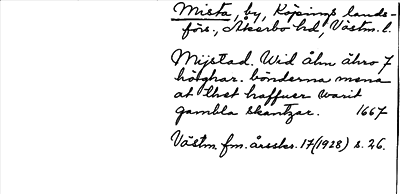 Mista, by, Köpings lands-
förs., Åkerbo hd, Västm. l.
Mijstad. Wid åhn ähro 7
höghar. bönderna mena
at thet haffuer warit
gambla skantzar. 1667
Västm. fm. årsskr. 17 (1928) s. 26.